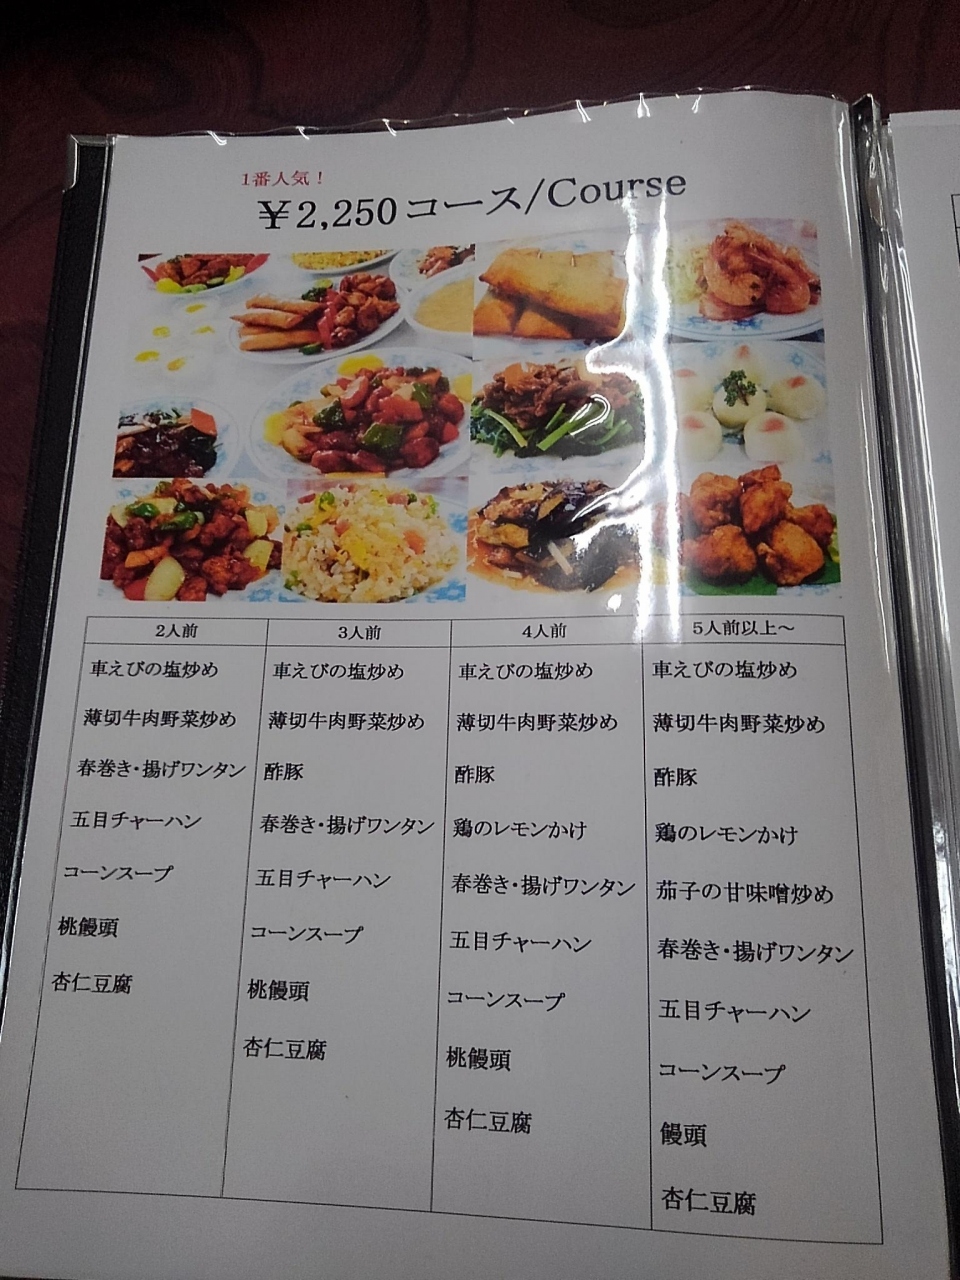 1番人気！
￥2,250コース/Course
2人前
車えびの塩炒め
薄切牛肉野菜炒め
春巻き・揚げワンタン
五目チャーハン
コーンスープ
桃饅頭
杏仁豆腐
3人前
車えびの塩炒め
薄切牛肉野菜炒め
酢豚
春巻き・揚げワンタン
五目チャーハン
コーンスープ
桃饅頭
杏仁豆腐
4人前
車えびの塩炒め
薄切牛肉野菜炒め
酢豚
鶏のレモンかけ
春巻き・揚げワンタン
五目チャーハン
コーンスープ
桃饅頭
杏仁豆腐
5人前以上～
車えびの塩炒め
薄切牛肉野菜炒め
酢豚
鶏のレモンかけ
茄子の甘味噌炒め
春巻き・揚げワンタン
五目チャーハン
コーンスープ
饅頭
杏仁豆腐